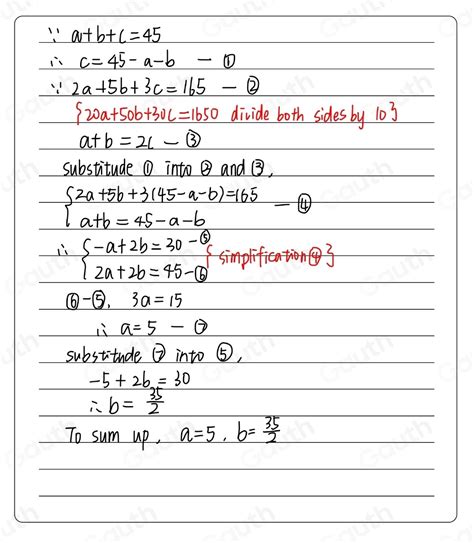 ∵ a+b+c=45
∴ c=45-a-b — ①
∵ 2a+5b+3c=165 — ②
{20a+50b+30c=1650 divide both sides by 10}
a+b=2c — ③
substitude ① into ② and ③,
{2a+5b+3(45-a-b)=165
a+b=45-a-b — ④
∴ {-a+2b=30-⑤
2a+2b=45-⑥ {simplification④}
⑥-⑤, 3a=15
∴ a=5 — ⑦
substitude ⑦ into ⑤,
-5+2b=30
∴ b=35/2
To sum up, a=5, b=35/2
Gauth